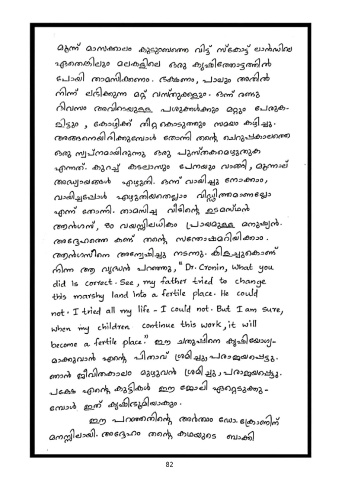 മൂന്ന് മാസക്കാലം കുടുംബത്തെ വിട്ട് സ്കോട്ട് ലാൻഡിലെ
ഏതെങ്കിലും മലകളിലെ ഒരു കൃഷിത്തോട്ടത്തിൽ
പോയി താമസിക്കണം. ഭക്ഷണം, പാലും അതിൽ
നിന്ന് ലഭിക്കുന്ന മറ്റ് വസ്തുക്കളും. ഒന്ന് രണ്ടു
ദിവസം അവിടെയുള്ള പശുക്കൾക്കും മറ്റും
കോഴിക്ക് തീറ്റ കൊടുത്തും സമയം കഴിച്ചു.
അങ്ങനെയിരിക്കുമ്പോൾ തോന്നി തന്റെ ചെറുപ്പകാലത്തെ
ഒരു സ്വപ്നമായിരുന്നു ഒരു പുസ്തകമെഴുതുക
എന്നത്. കുറച്ച് കടലാസും പേനയും വാങ്ങി, മൂന്നാല്
അദ്ധ്യായങ്ങൾ എഴുതി. ഒന്ന് വായിച്ചു നോക്കാം,
വായിച്ചപ്പോൾ എഴുതിയതെല്ലാം വിഡ്ഢിത്തമാണല്ലോ
എന്ന് തോന്നി. താമസിച്ച വീടിന്റെ ഉടമസ്ഥൻ
ആൻഗസ്, 80 വയസ്സിലധികം പ്രായമുള്ള മനുഷ്യൻ.
അദ്ദേഹത്തെ കണ്ട് തന്റെ, സന്തോഷമറിയിക്കാം.
ആൻഗസിനെ അന്വേഷിച്ചു നടന്നു. കിളച്ചുകൊണ്ട്
നിന്ന ആ വൃദ്ധൻ പറഞ്ഞു, "Dr. Cronin, What you
did is correct. See, my father tried to change
this marshy land into a fertile place. He could
not. I tried all my life - I could not. But I am sure,
when my children continue this work, it will
become a fertile place." ഈ ചതുപ്പിനെ കൃഷിയോഗ്യ-
മാക്കുവാൻ എന്റെ പിതാവ് ശ്രമിച്ചു, പരാജയപ്പെട്ടു.
ഞാൻ ജീവിതകാലം മുഴുവൻ ശ്രമിച്ചു, പരാജയപ്പെട്ടു.
പക്ഷേ എന്റെ കുട്ടികൾ ഈ ജോലി ഏറ്റെടുക്കു-
മ്പോൾ ഇത് കൃഷിഭൂമിയാകും.
ഈ പറഞ്ഞതിന്റെ അർത്ഥം ഡോ. ക്രോണിന്
മനസ്സിലായി. അദ്ദേഹം തന്റെ കഥയുടെ ബാക്കി
82